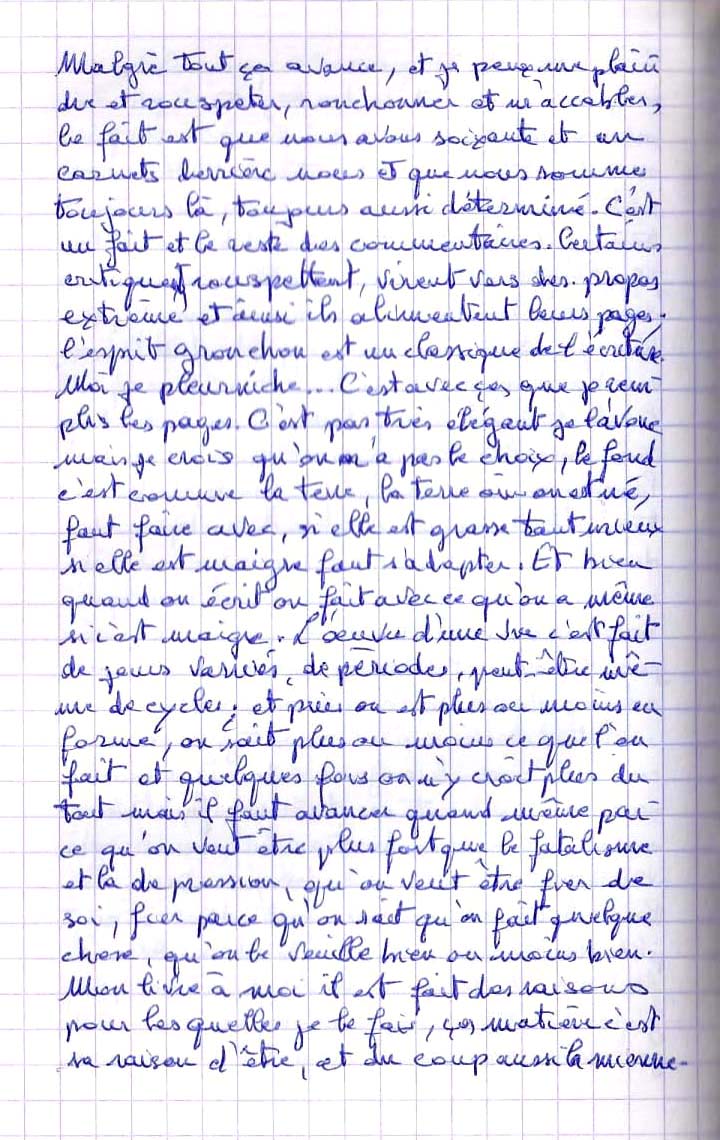 Malgré tout ça avance, et je peux me plain
dre et rouspeter, ronchonner et m'accabler,
le fait est que nous avons soixante et un
carnets derrière nous et que nous somme
toujours là, toujours aussi déterminé. C'est
un fait et le reste des commentaires. Certains
critiques, rouspettent, virent vers des propos
extrême et ainsi ils alimentent leurs pages.
l'esprit gronchon est un classique de l'écriture.
Moi je pleurniche... C'est avec ça que je rem-
plis les pages. C'est pas très élégant je l'avoue
mais je crois qu'on n'a pas le choix, le fond
c'est comme la terre, la terre où on est né,
faut faire avec, si elle est grasse tant mieux
si elle est maigre faut s'adapter. Et bien
quand on écrit on fait avec ce qu'on a même
si c'est maigre. L'oeuvre d'une vie c'est fait
de jours variés, de périodes, peut-être mê-
me de cycles, et puis on est plus ou moins en
forme, on sait plus ou moins ce que l'on
fait et quelques fois on n'y croit plus du
tout mais il faut avancer quand même par-
ce qu'on veut être plus fort que le fatalisme
et la depression, qu'on veut être fier de
soi, fier parce qu'on sait qu'on fait quelque
chose, qu'on le veuille bien ou moins bien.
Mon livre à moi il est fait des raisons
pour lesquelles je le fais, ça matière c'est
sa raison d'être, et du coup aussi la mienne.